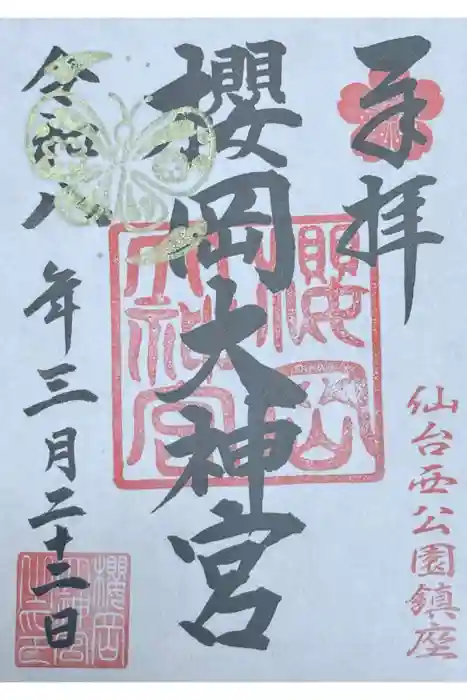 奉拝
仙台西公園鎮座
櫻岡大神宮
櫻岡大神宮
令和八年三月二十二日
櫻岡大神宮之印